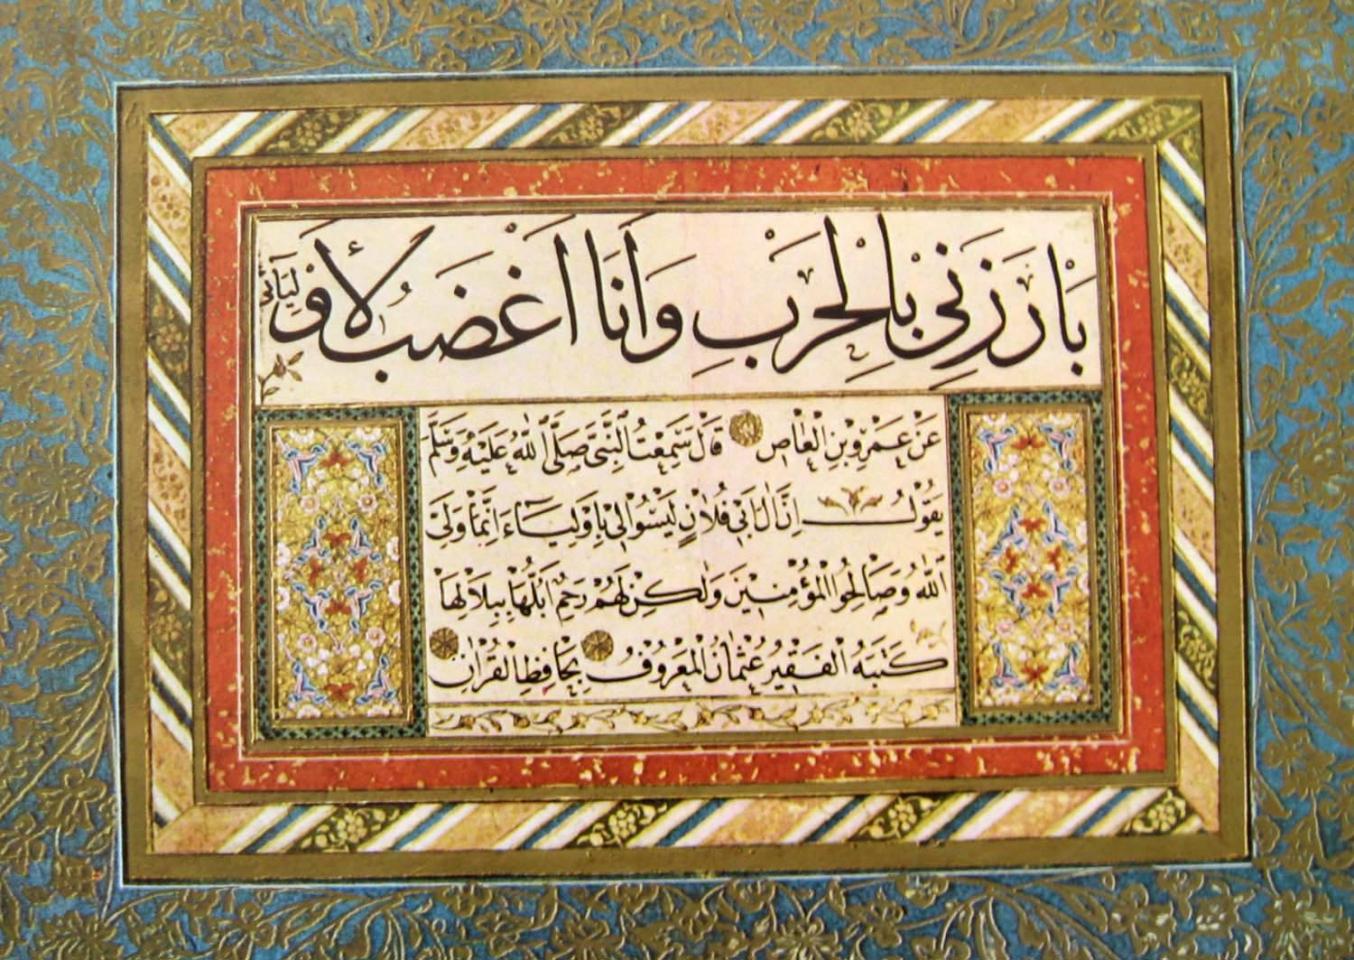 بَارَزَنِي بِالْحَرْبِ وَأَنَا أَغْضَبُ لِأَوْلِيَائِي
عَنْ عَمْرِو بْنِ الْعَاصِ قَالَ سَمِعْتُ النَّبِيَّ صَلَّى اللّٰهُ عَلَيْهِ وَسَلَّمَ
يَقُولُ إِنَّ اٰلَ أَبِي فُلَانٍ لَيْسُوا لِي بِأَوْلِيَاءَ إِنَّمَا وَلِيِّيَ
اللّٰهُ وَصَالِحُوا الْمُؤْمِنِينَ وَلٰكِنْ لَهُمْ رَحِمٌ أَبُلُّهَا بِبِلَالِهَا
كَتَبَهُ الْفَقِيرُ عُثْمَانُ الْمَعْرُوفُ بِحَافِظِ الْقُرْاٰنِ